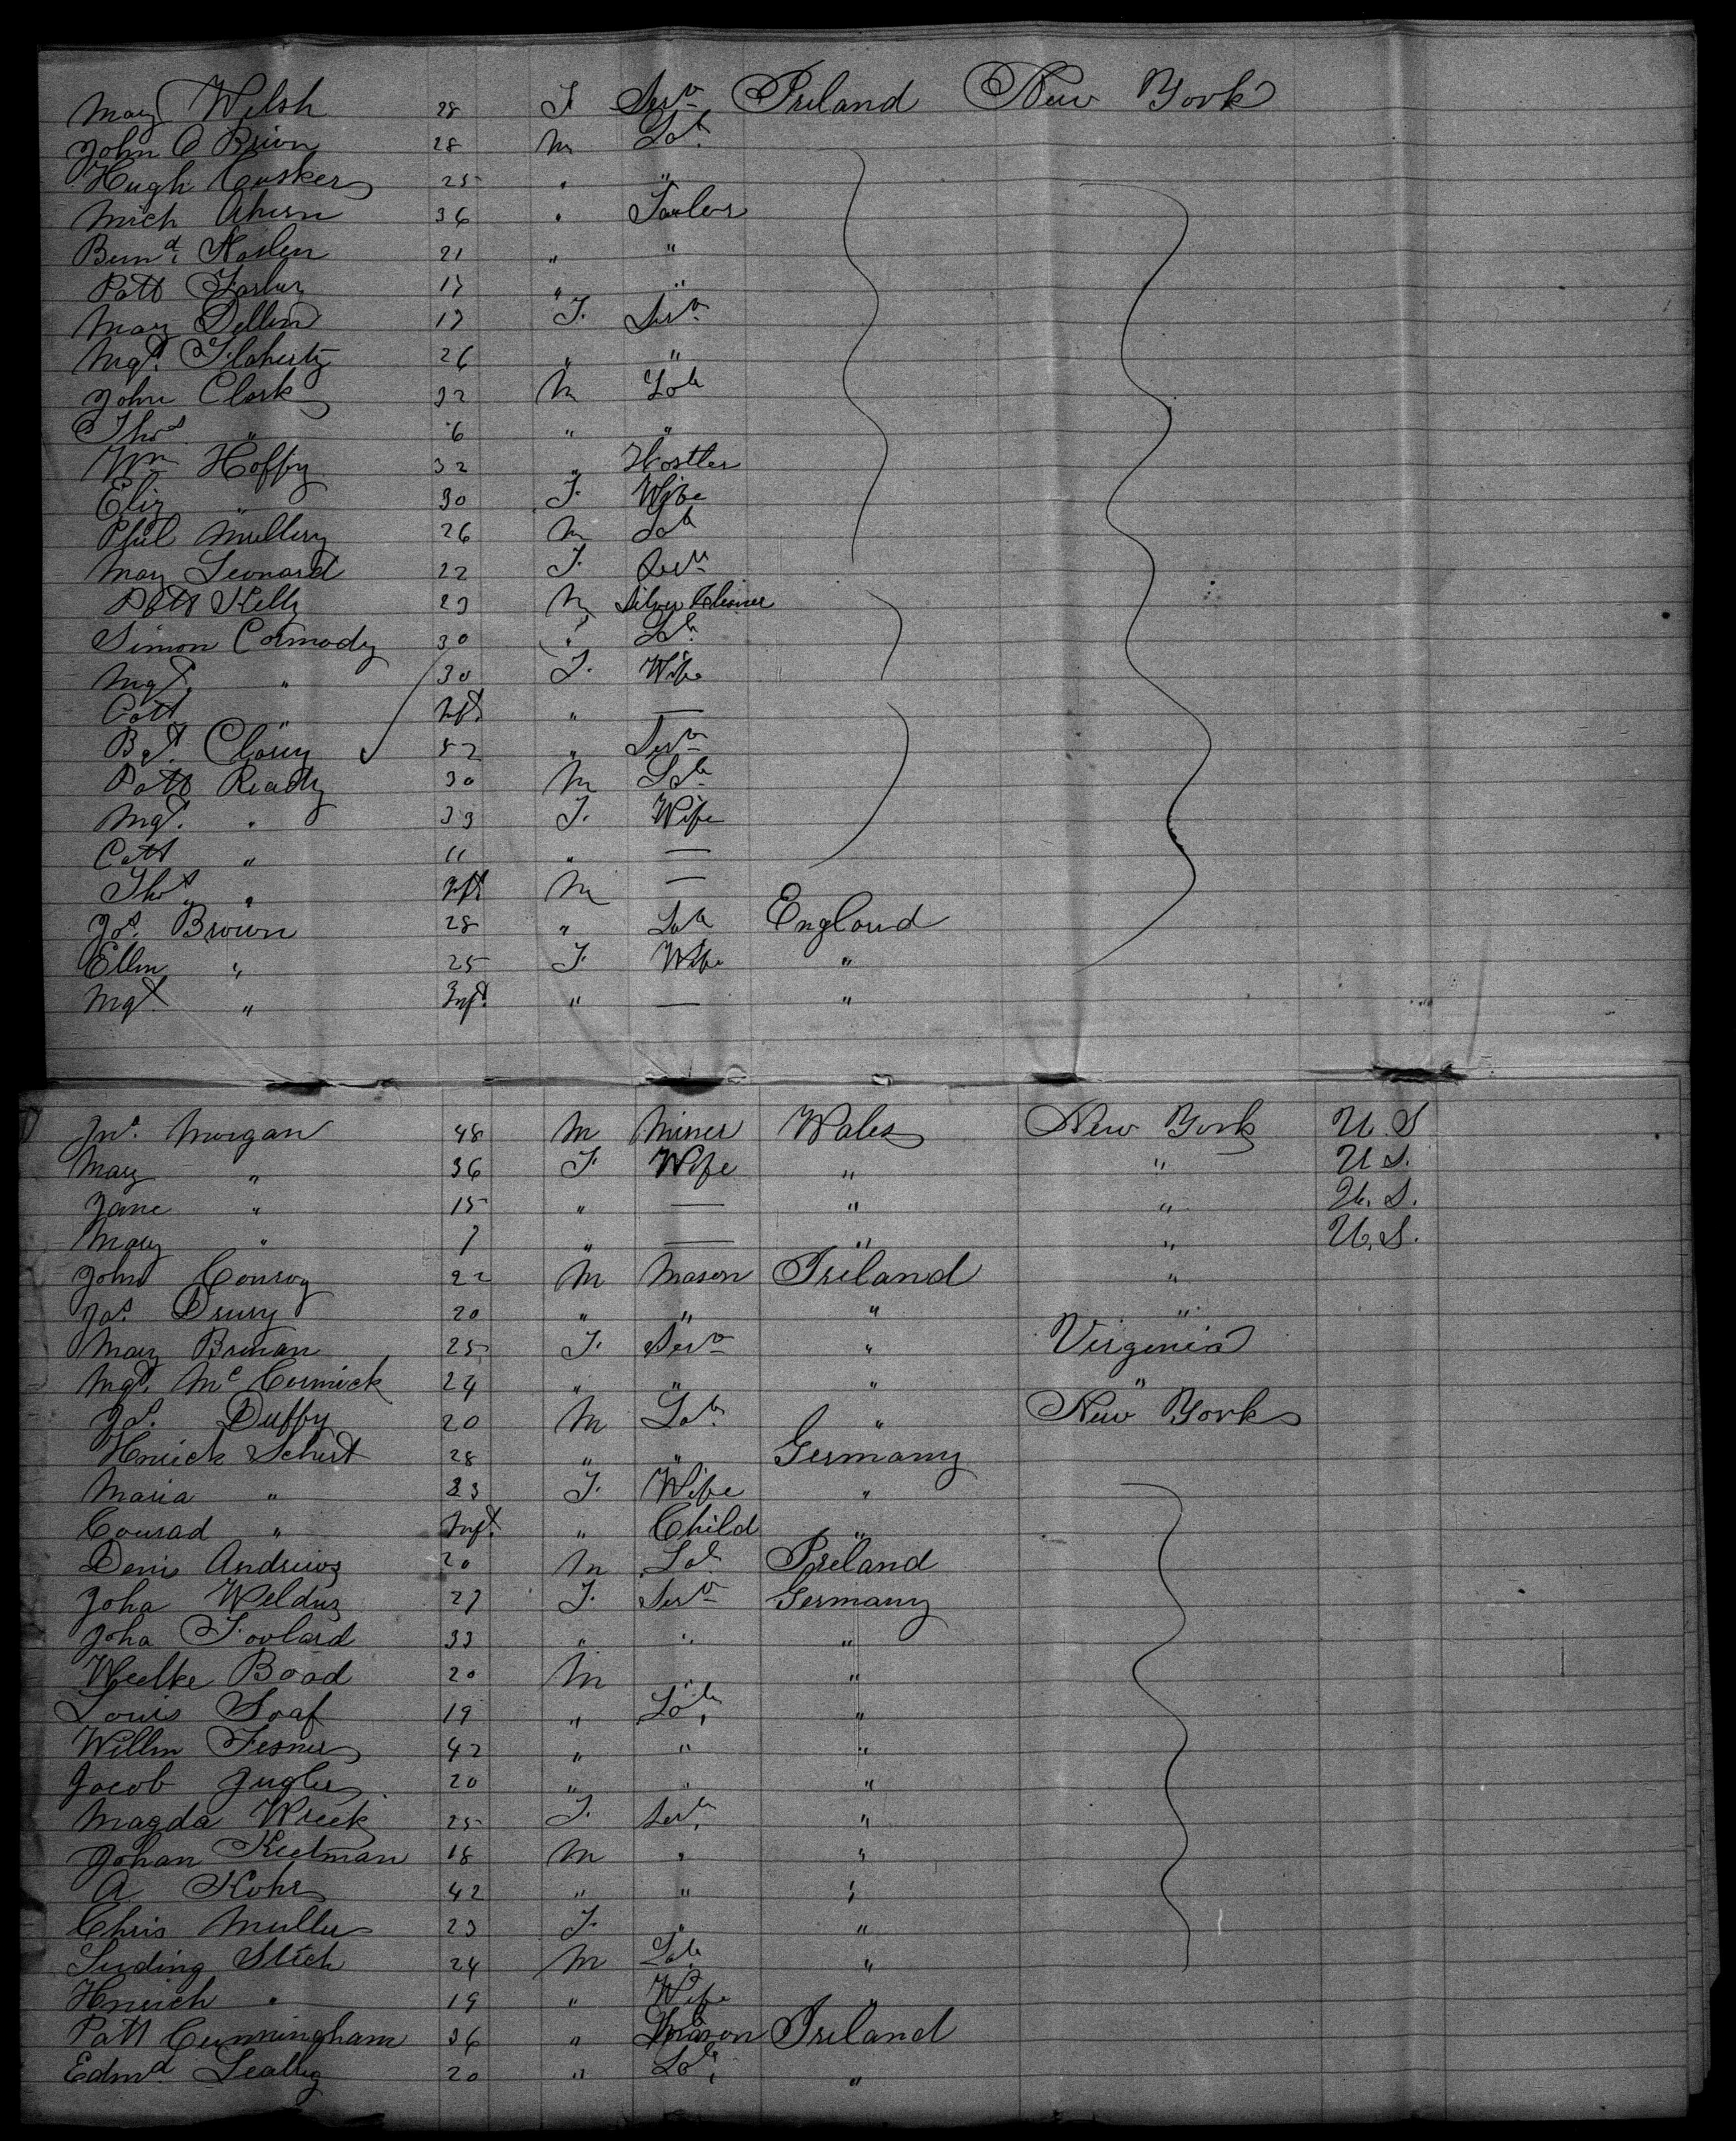 Mary Welsh 28 F Servt Ireland New York
John O Brien 28 M Lab.
Hugh 25 " "
Mich Ahern 36 "
Bernd. 21 " "
Patt 17 " "
Mary Dillon 17 F. Servt
Mgt. Flaherty 26 " "
John Clark 32 M Lab
Thos " 6 " "
Wm Hoffy 32 " Hostler
Eliz " 30 F. Wife
Phil Mullery 26 M Lab
Mary Leonard 22 F. Servt
Patt Kelly 23 M
Simon Cormody 30 " Lab.
Mgt. " 30 F. Wife
Catt " Inft. " —
Bgt. 52 " Servt
Patt Ready 30 M Lab
Mgt. " 33 F. Wife
Catt " 11 " —
Thos " Inft. M —
Jas. Brown 28 " Lab England
Ellen " 25 F Wife "
Mgt. " Inft. " — "
Jno. Morgan 48 M Miner Wales New York U. S
Mary " 36 F Wife " " U. S.
Jane " 15 " — " " U. S.
Mary " 7 " — " " U. S.
John Conroy 22 M Mason Ireland "
Jas. Drury 20 " " " "
Mary Brenan 25 F. Servt " Virginia
Mgt. Mc Cormick 24 " " " "
Jas. Duffy 20 M Lab. " New York
Henrick 28 " " Germany
Maria " 23 F. Wife "
Conrad " Inft. " Child "
Denis Andrews 20 M Lab. Ireland
Joha 27 F. Servt Germany
Joha 33 " " "
Boad 20 M " "
Louis 19 " Lab. "
Willm Fesner 42 " " "
Jacob 20 " " "
Magda Wreek 25 F. Servt "
Johan 18 M " "
A. Kohr 42 " " "
Chris Muller 23 F. " "
24 M Lab. "
Henrich " 19 " Wife "
Patt Cunningham 36 " Mason Ireland
Edmd. 20 " Lab. "